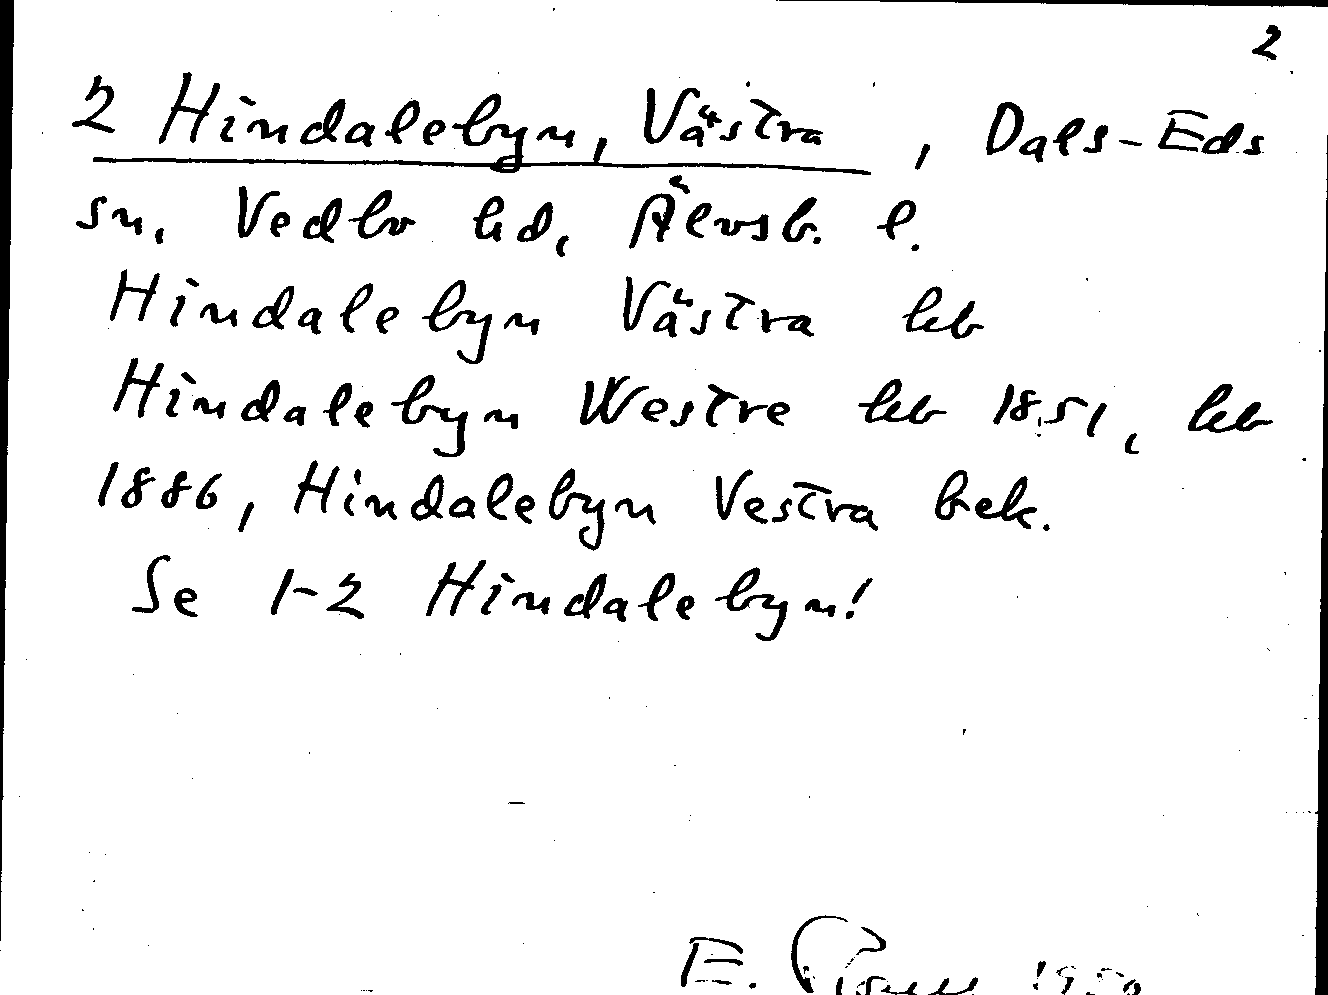 2
2 Hindalebyn, Västra, Dals-Eds
sn, Vedbo hd, Älvsb. l.
Hindalebyn Västra hb
Hindalebyn Westre hb 1851, hb
1886, Hindalebyn Vestra bek.
Se 1-2 Hindalebyn!
E. 1950